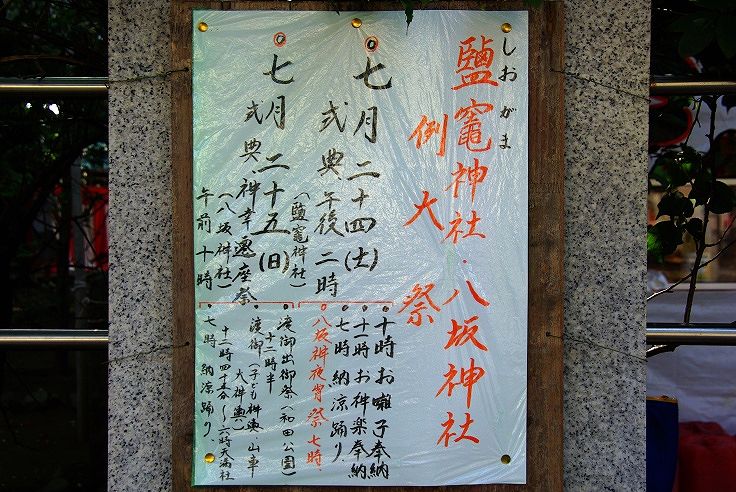 しおがま
鹽竈神社・八坂神社
例大祭
◎七月二十四(土)
式典午後二時
(鹽竈神社)
・十時お囃子奉納
・十一時お神楽奉納
・七時納涼踊り
◎八坂神夜宵祭七時、
◎七月二十五(日)
式典神幸遷座祭
(八坂神社)
午前十時
・渡御出御祭(和田公園)
十二時半
・渡御(子ども神輿、山車
大神輿)
十二時四十五分～六時天満社
・七時納涼踊り、